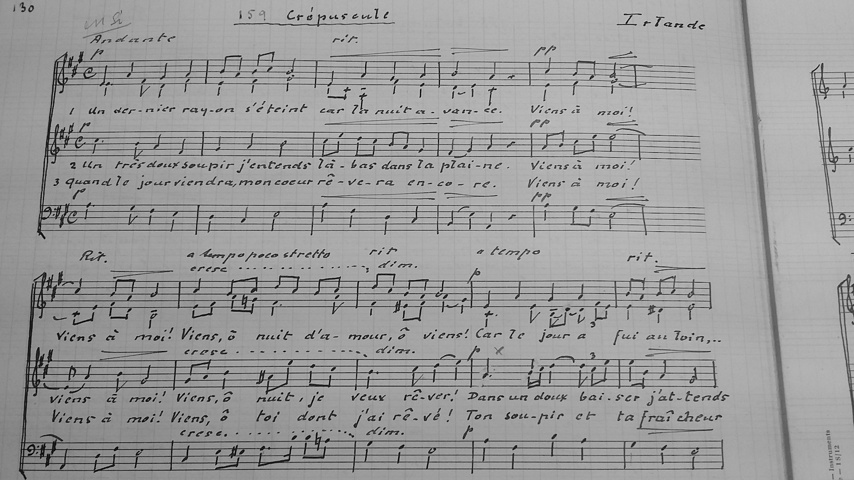 130
en si
159 Crépuscule
Irlande
Andante
rit.
p
pp
1 Un der-nier ray-on s'éteint car la nuit a-van-ce. Viens à moi!
p
pp
2 Un très doux soupir j'entends là-bas dans la plai-ne. Viens à moi!
3 quand le jour viendra, mon coeur rê-ve-ra en-co-re. Viens à moi!
p
pp
Rit.
a tempo poco stretto
rit
a tempo
rit.
cresc
dim.
p
viens à moi! Viens, ô nuit d'a-mour, ô viens! Car le jour a fui au loin,..
3
cresc.
dim.
p
x
3
viens à moi! Viens, ô nuit, je veux rê-ver! Dans un doux bai-ser j'at-tends
Viens à moi! Viens, ô toi dont j'ai rê-vé! Ton sou-pir et ta fraîcheur
cresc.
dim.
p
Instruments